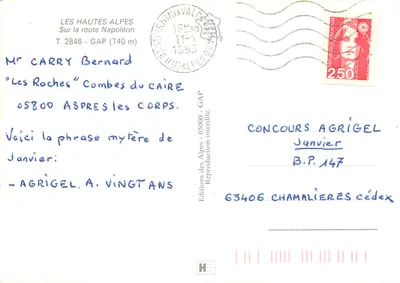 LES HAUTES ALPES
Sur la route Napoléon
T. 2846 - GAP (740 m)
Mr CARRY Bernard
"Les Roches" Combes du CAIRE
05800 ASPRES les CORPS.
Voici la phrase mytère de
Janvier:
- AGRIGEL. A. VINGT ANS
Editions des Alpes - 05000 - GAP
Reproduction interdite.
11-1
1995
2,50
CONCOURS AGRIGEL
Janvier
B.P. 147
63406 CHAMALIERES Cédex